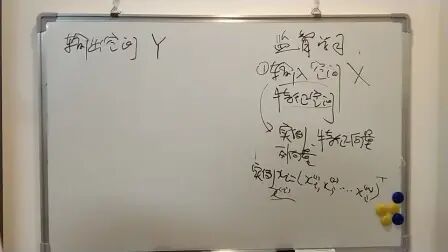 输出空间 Y
监督学习
① 输入空间 X
特征空间
实例 特征向量
实例 xᵢ=(xᵢ⁽¹⁾, xᵢ⁽²⁾, … xᵢ⁽ⁿ⁾)ᵀ